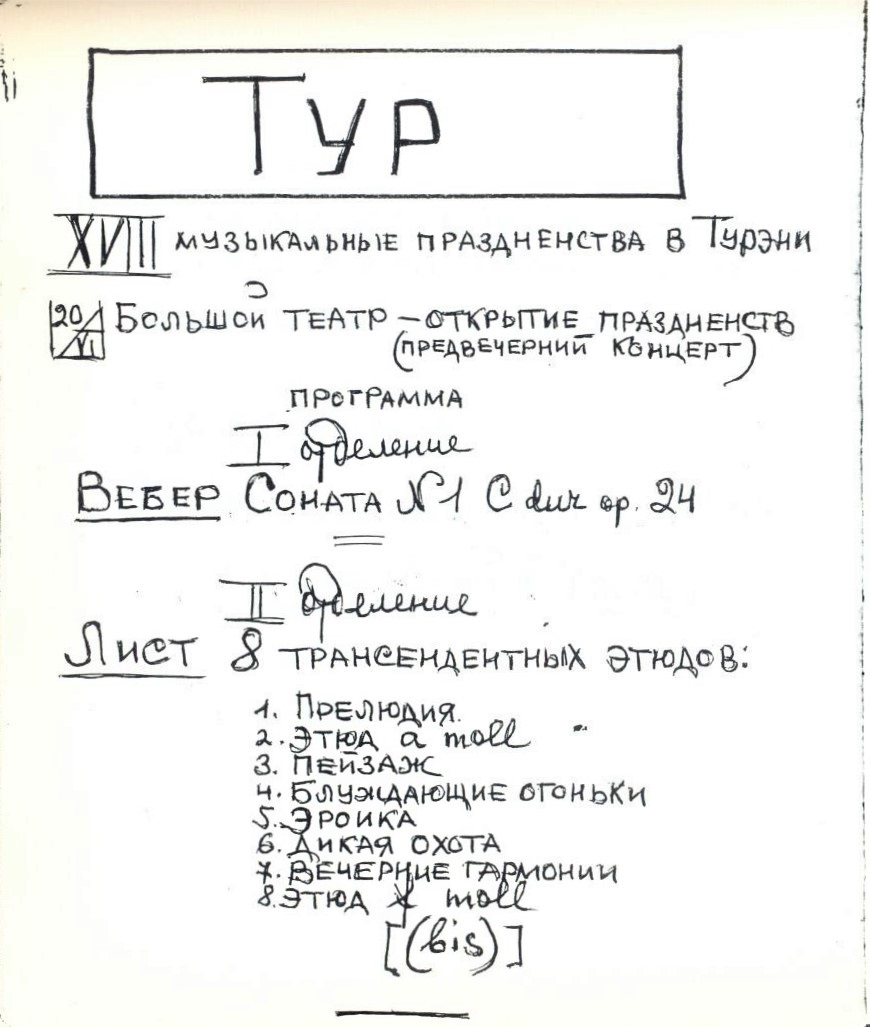 Тур
XVIII музыкальные праздненства в Турэни
20/VI Большой театр – открытие праздненств
(предвечерний концерт)
программа
I отделение
Вебер Соната №1 C dur op. 24
II отделение
Лист 8 трансендентных этюдов:
1. Прелюдия.
2. Этюд a moll
3. Пейзаж
4. Блуждающие огоньки
5. Эроика
6. Дикая охота
7. Вечерние гармонии
8. Этюд f moll
[(bis)]